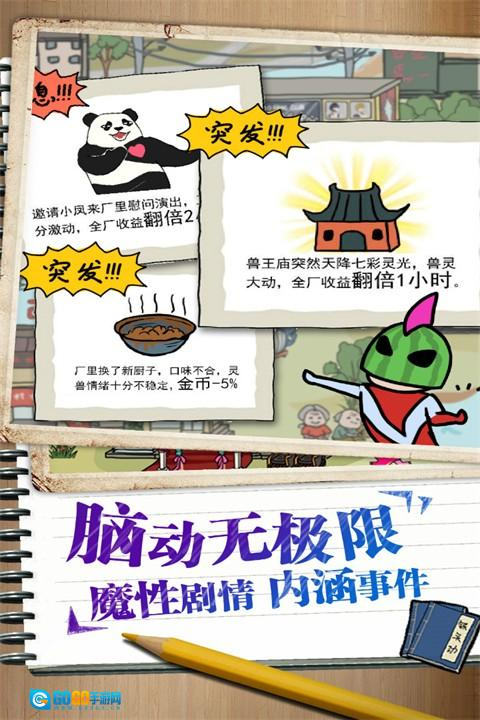 息!!!
突发!!!
邀请小凤来厂里慰问演出，
分激动，全厂收益翻倍2
兽王庙突然天降七彩灵光，兽灵
大动，全厂收益翻倍1小时。
突发!!!
厂里换了新厨子，口味不合，灵
兽情绪十分不稳定，金币-5%
脑动无极限
魔性剧情 内涵事件
铁头功
GO99手游网